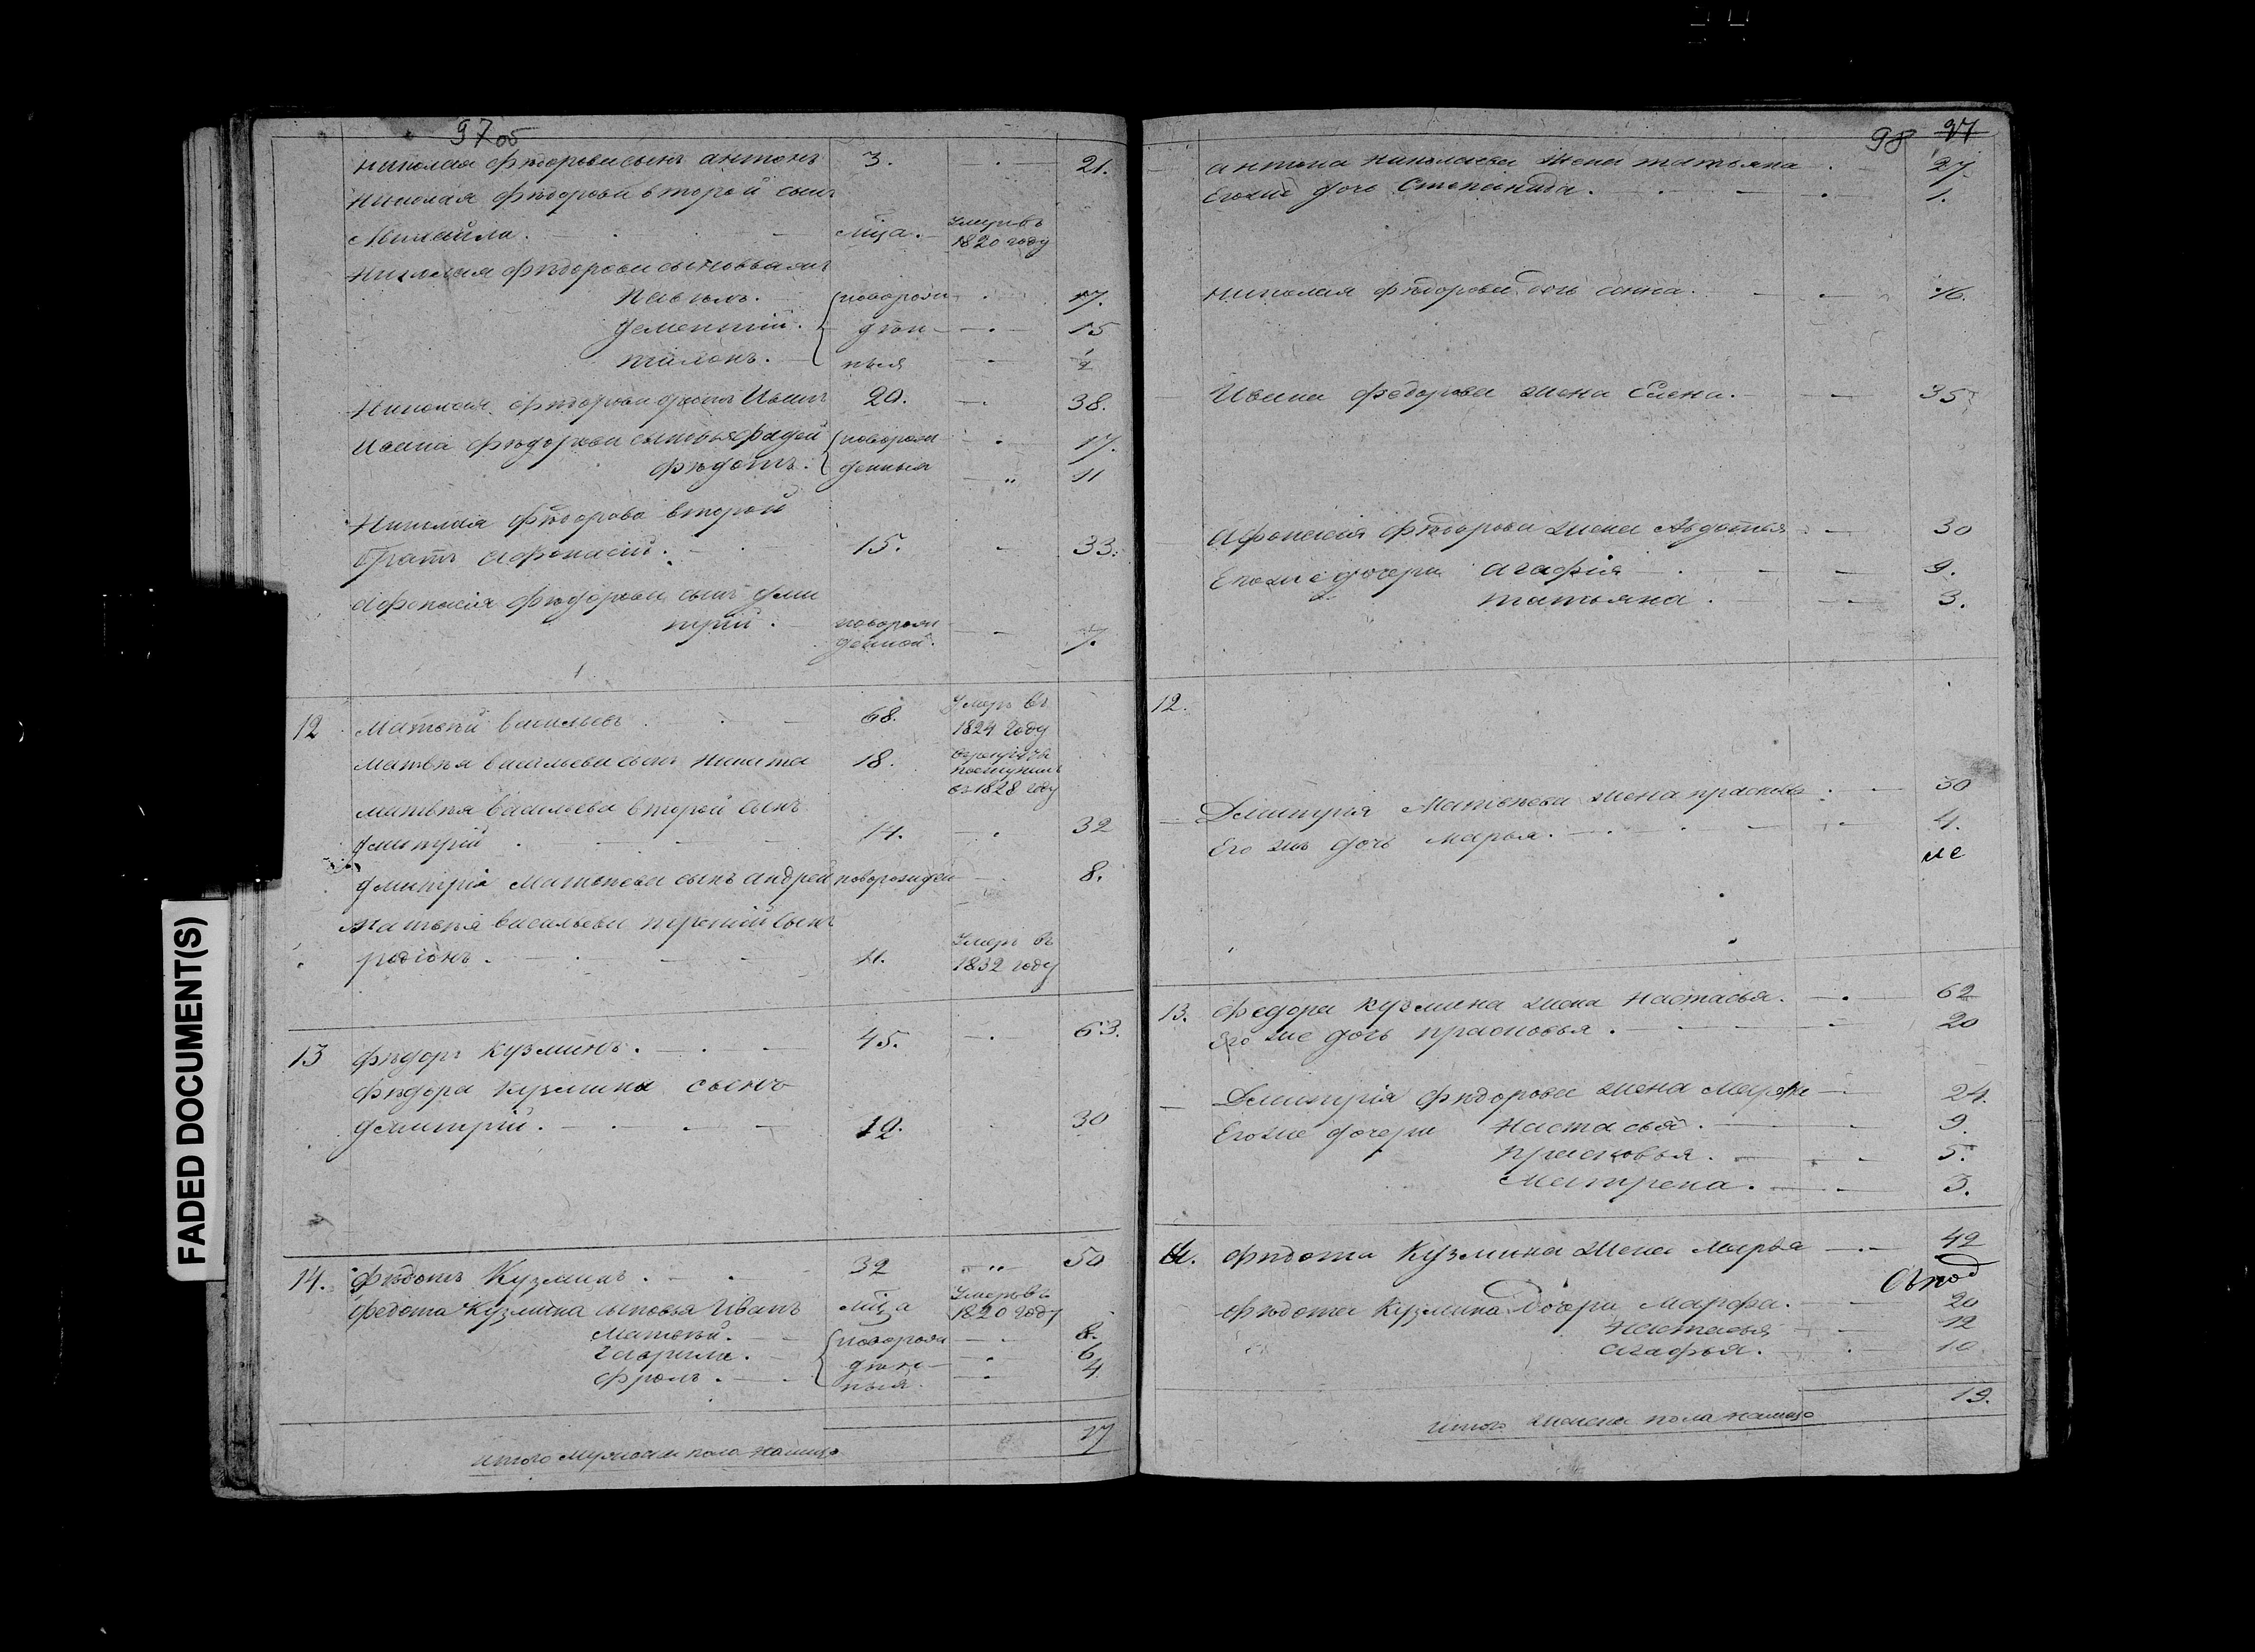 97об
Николая Фѣдорова сынъ Антонъ 3. 21.
Николая Фѣдорова второй сынъ
Михайла. мѣца. Умеръ въ 1820 году
Николая Фѣдорова сыновья
Павелъ. новорож 17.
Дементий. ден 15
Тимонъ. ныя
Николая Фѣдорова братъ Иванъ 20. 38.
Ивана Фѣдорова сыновья Фадей новорож 17.
Фѣдотъ. денныя 11
Николая Фѣдорова второй
братъ Афонасiй. 15. 33.
Афонасiя Фѣдорова сынъ Дми
трiй. новорож
денной. 7.
12 Матвѣй Васильевъ 68. Умеръ въ
1824 году
Матвѣя Васильева сынъ Никита 18. поступилъ
въ 1828 году
Матвѣя Васильева второй сынъ
Дмитрiй 14. 32
Дмитрiя Матвѣева сынъ Андрей новорожден 8.
Матвѣя Васильева третiй сынъ
Родiонъ. 11. Умеръ въ
1832 году
13 Фѣдоръ Кузминъ. 45. 63.
Фѣдора Кузмина сынъ
Дмитрiй. 12. 30
14. Фѣдотъ Кузминъ. 32 50
Федота Кузмина сыновья Иванъ мѣца Умеръ въ
1820 году
Матвѣй. новорож 8.
Гаврила. ден 6
Фролъ. ныя. 4
Итого мужеска пола налицо 17
98 97
Антона Николаева жена Татьяна 27.
Егоже дочь Степанида. 1.
Николая Фѣдорова дочь Анна. 16.
Ивана Федорова жена Елена. 35
Афонасiя Фѣдорова жена Авдотья 30
Егоже дочери Агафiя 9.
Татьяна. 3.
12.
Дмитрiя Матвѣева жена Прасковья 30
Его жъ дочь Марья. 4.
13. Федора Кузмина жена Настасья. 62
Его же дочь Прасковья. 20
Дмитрiя Фѣдорова жена Марфа 24.
Егоже дочери Настасья. 9.
Прасковья. 5.
Матрена. 3.
14. Фѣдота Кузмина жена Марья 42
Фѣдота Кузмина дочери Марфа. 20
Настасья 12
Агафья. 10
Итого женска пола налицо 19.
FADED DOCUMENT(S)